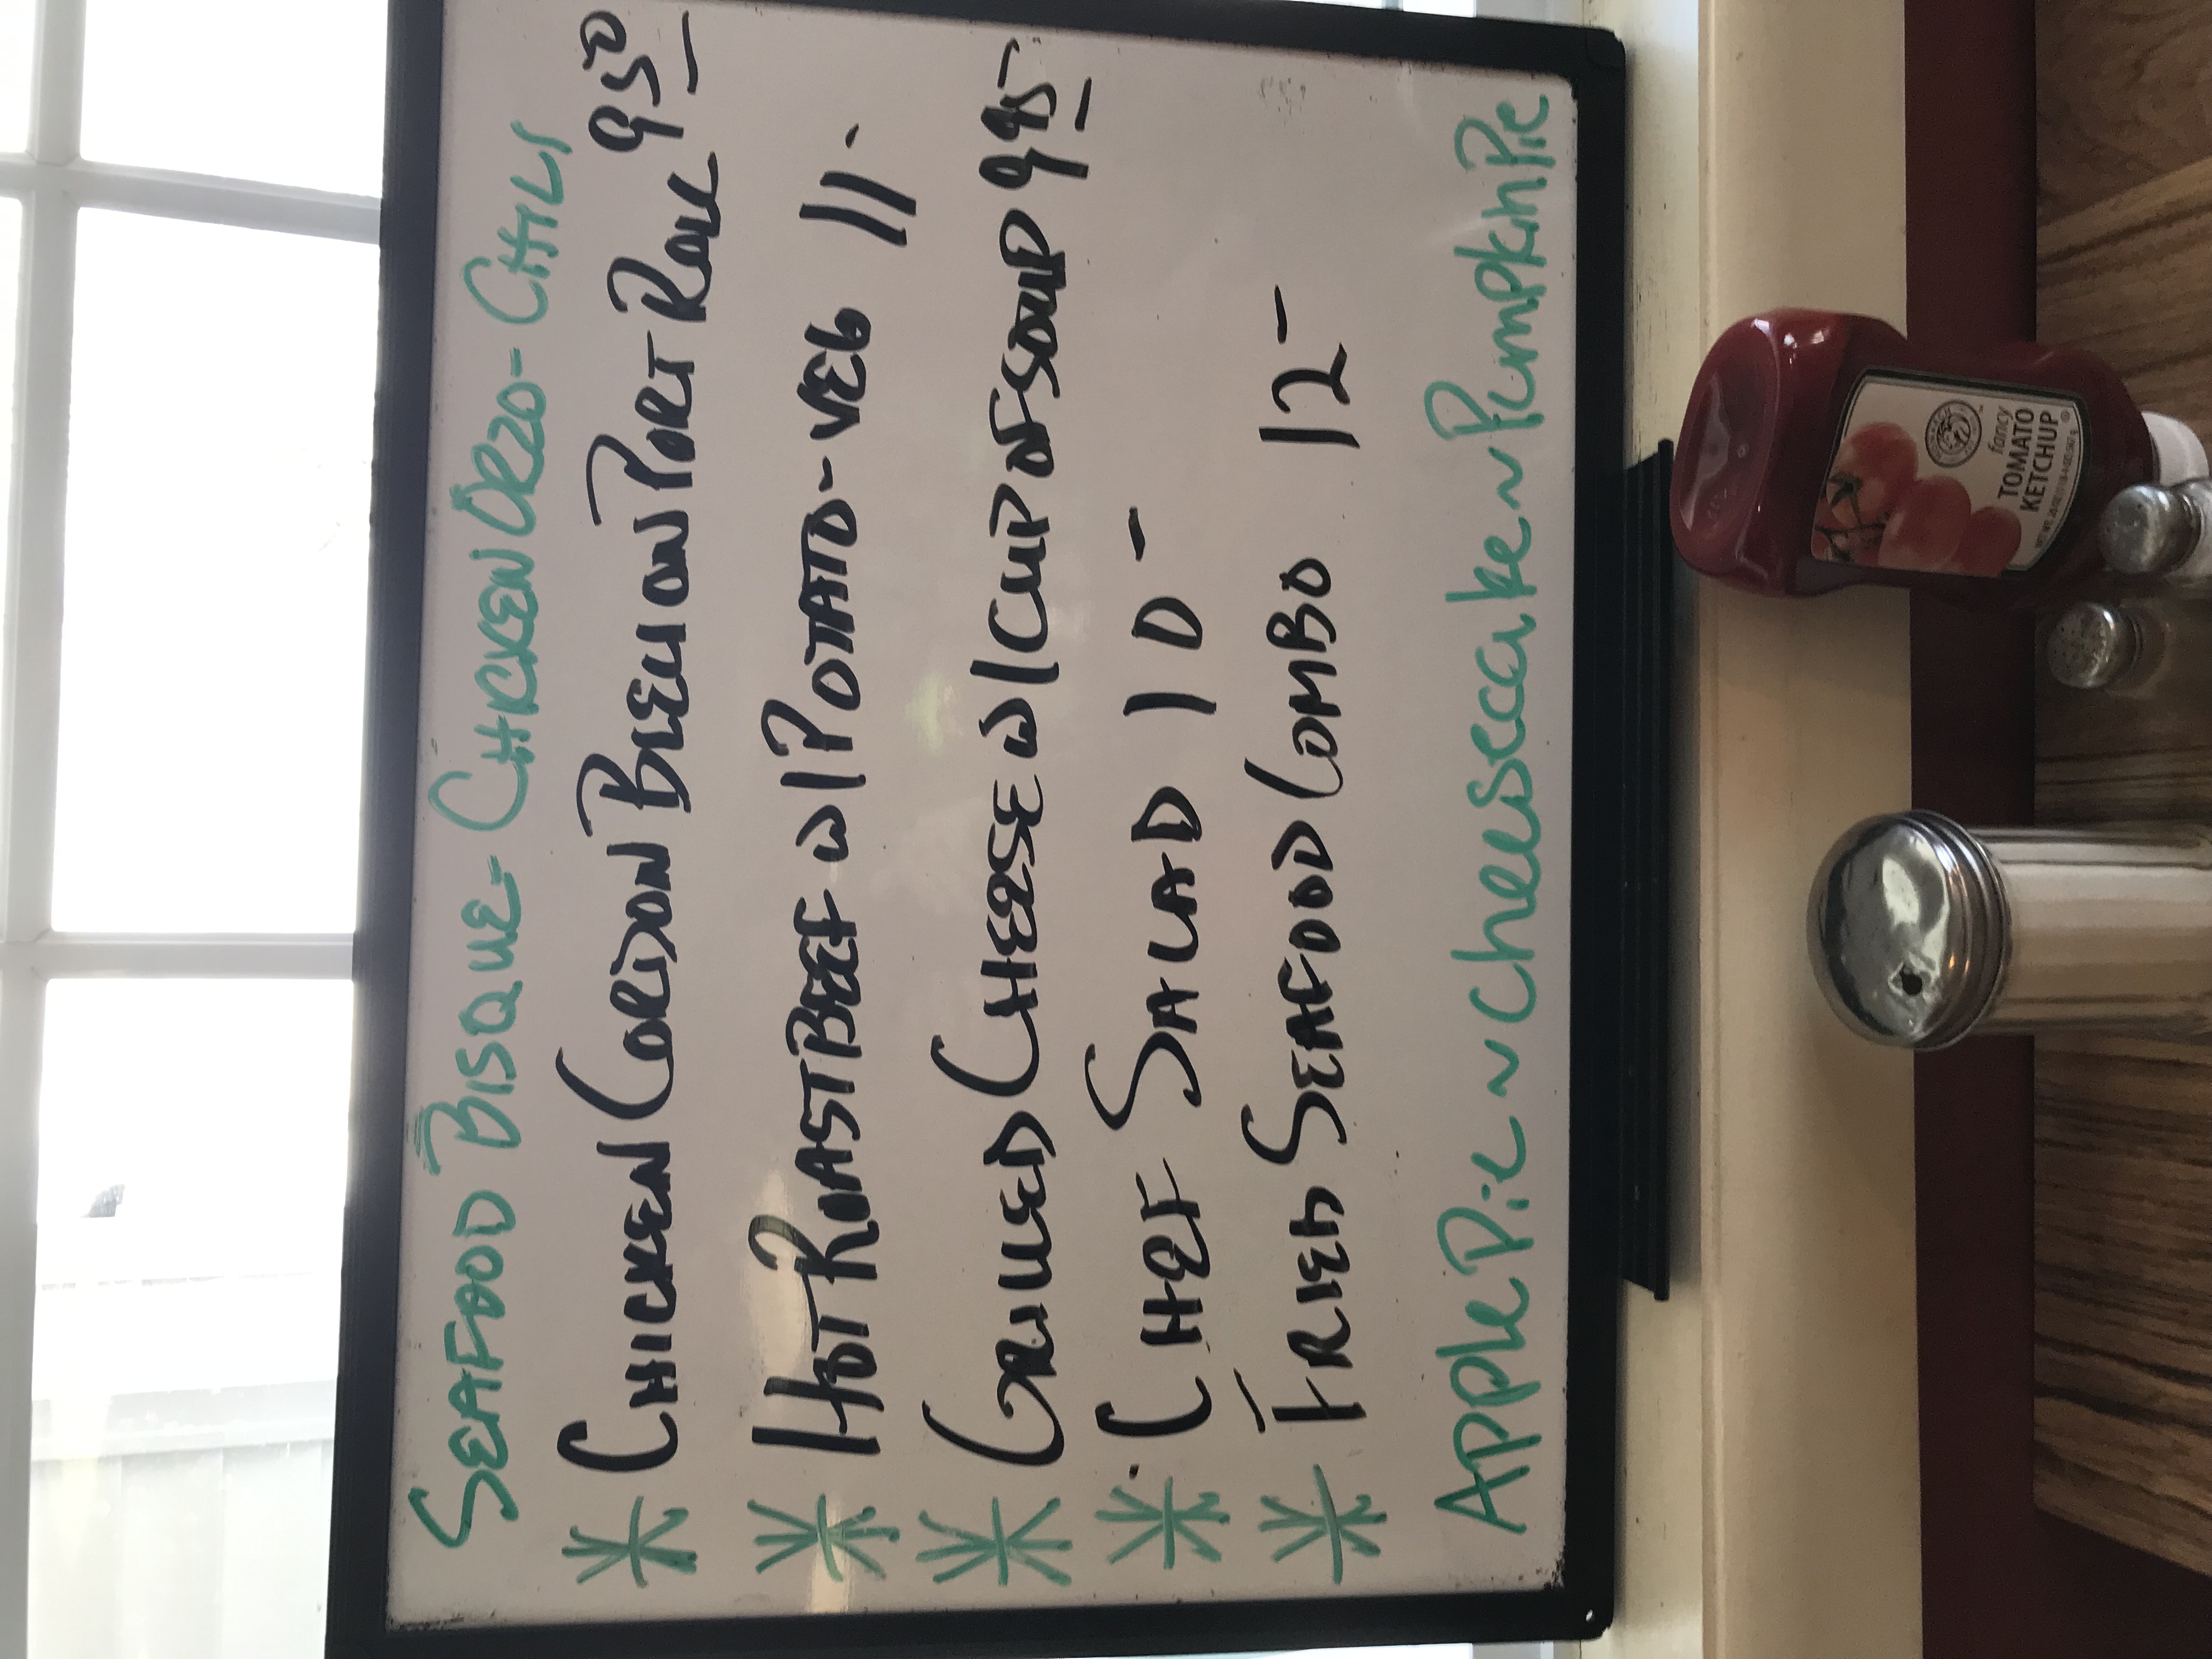 SEAFOOD BISQUE - CHICKEN ORZO - CHILI
* CHICKEN CORDON BLEU ON PORT ROLL 9 50
* HOT ROAST BEEF W/ POTATO - VEG 11.
* GRILLED CHEESE W/ CUP OF SOUP 9 95
* CHEF SALAD 10 -
* FRIED SEAFOOD COMBO 12 -
Apple Pie ~ Cheesecake ~ Pumpkin Pie
fancy
TOMATO
KETCHUP